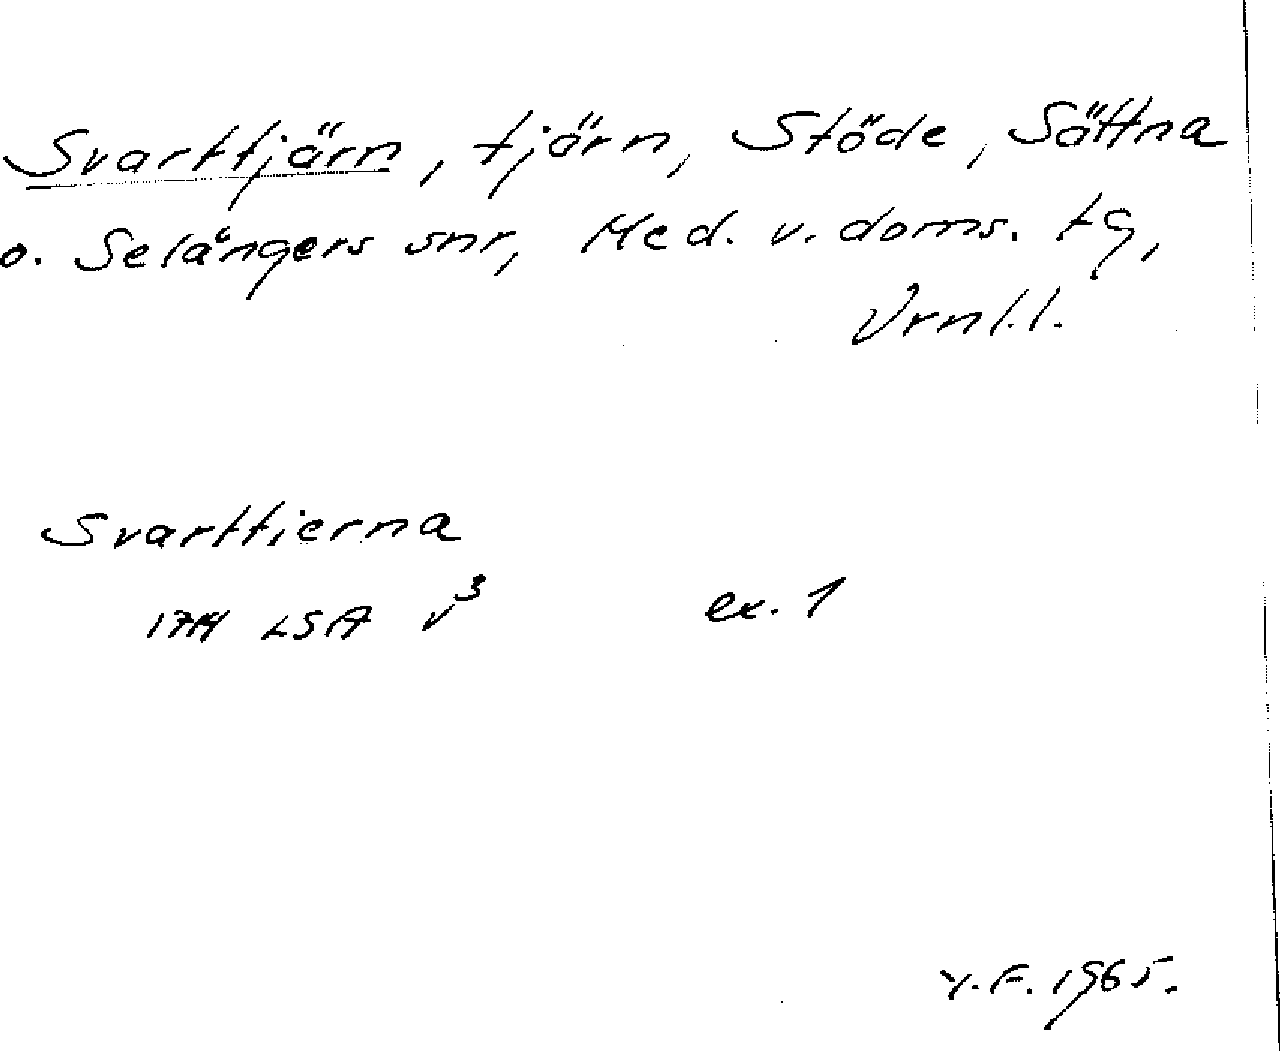 Svarttjärn, tjärn, Stöde, Sättna
o. Selångers snr, Med. v. doms. tg,
Vrnl.l.
Svarttierna
LSA v3 ex. 1
Y.F. 1965.